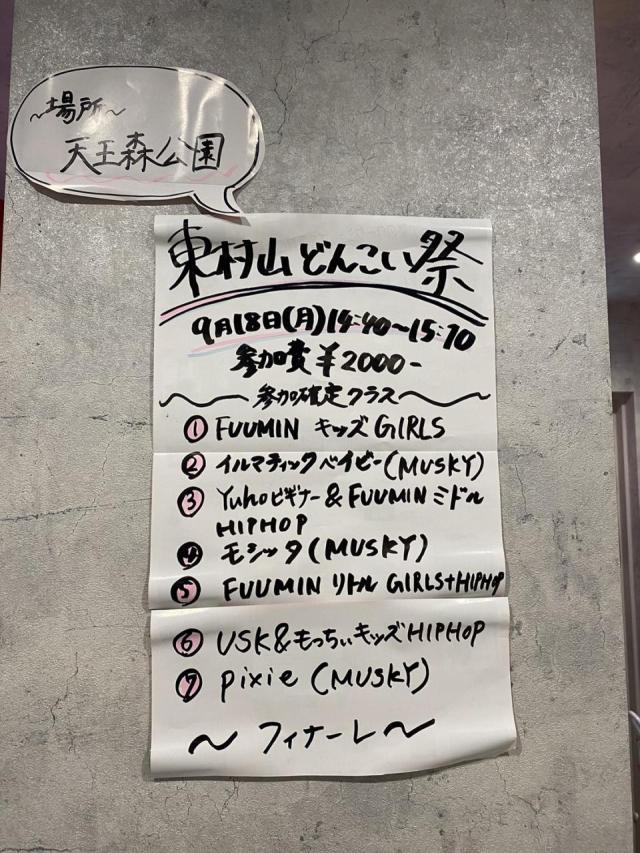 ～場所～
天王森公園
東村山どんこい祭
9月18日(月)14:40～15:10
参加費¥2000-
～参加確定クラス～
① FUUMIN キッズ GIRLS
② イルマティックベイビー(MUSKY)
③ Yuhoビギナー&FUUMINミドル
HIPHOP
④ モシッタ(MUSKY)
⑤ FUUMIN リトル GIRLS+HIPHOP
⑥ USK&もっちぃキッズHIPHOP
⑦ pixie (MUSKY)
～フィナーレ～